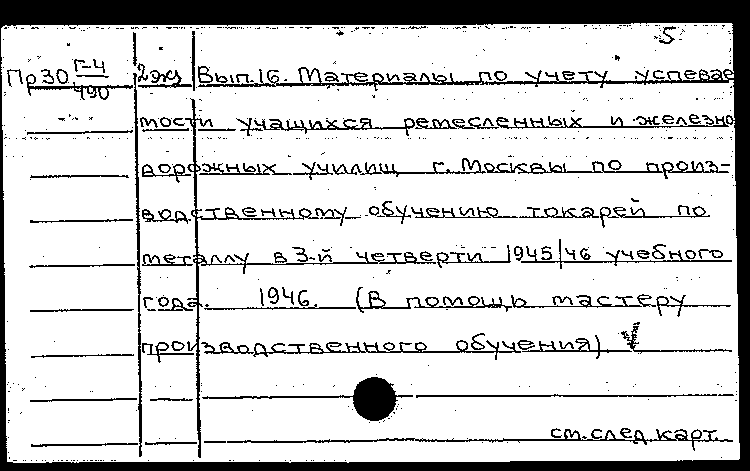 5
Пр30 Г-4/490 2 экз Вып.16. Материалы по учету успевае
мости учащихся ремесленных и железно
дорожных училищ г. Москвы по произ-
водственному обучению токарей по
металлу в 3-й четверти 1945/46 учебного
года. 1946. (В помощь мастеру
производственного обучения)
см. след. карт.